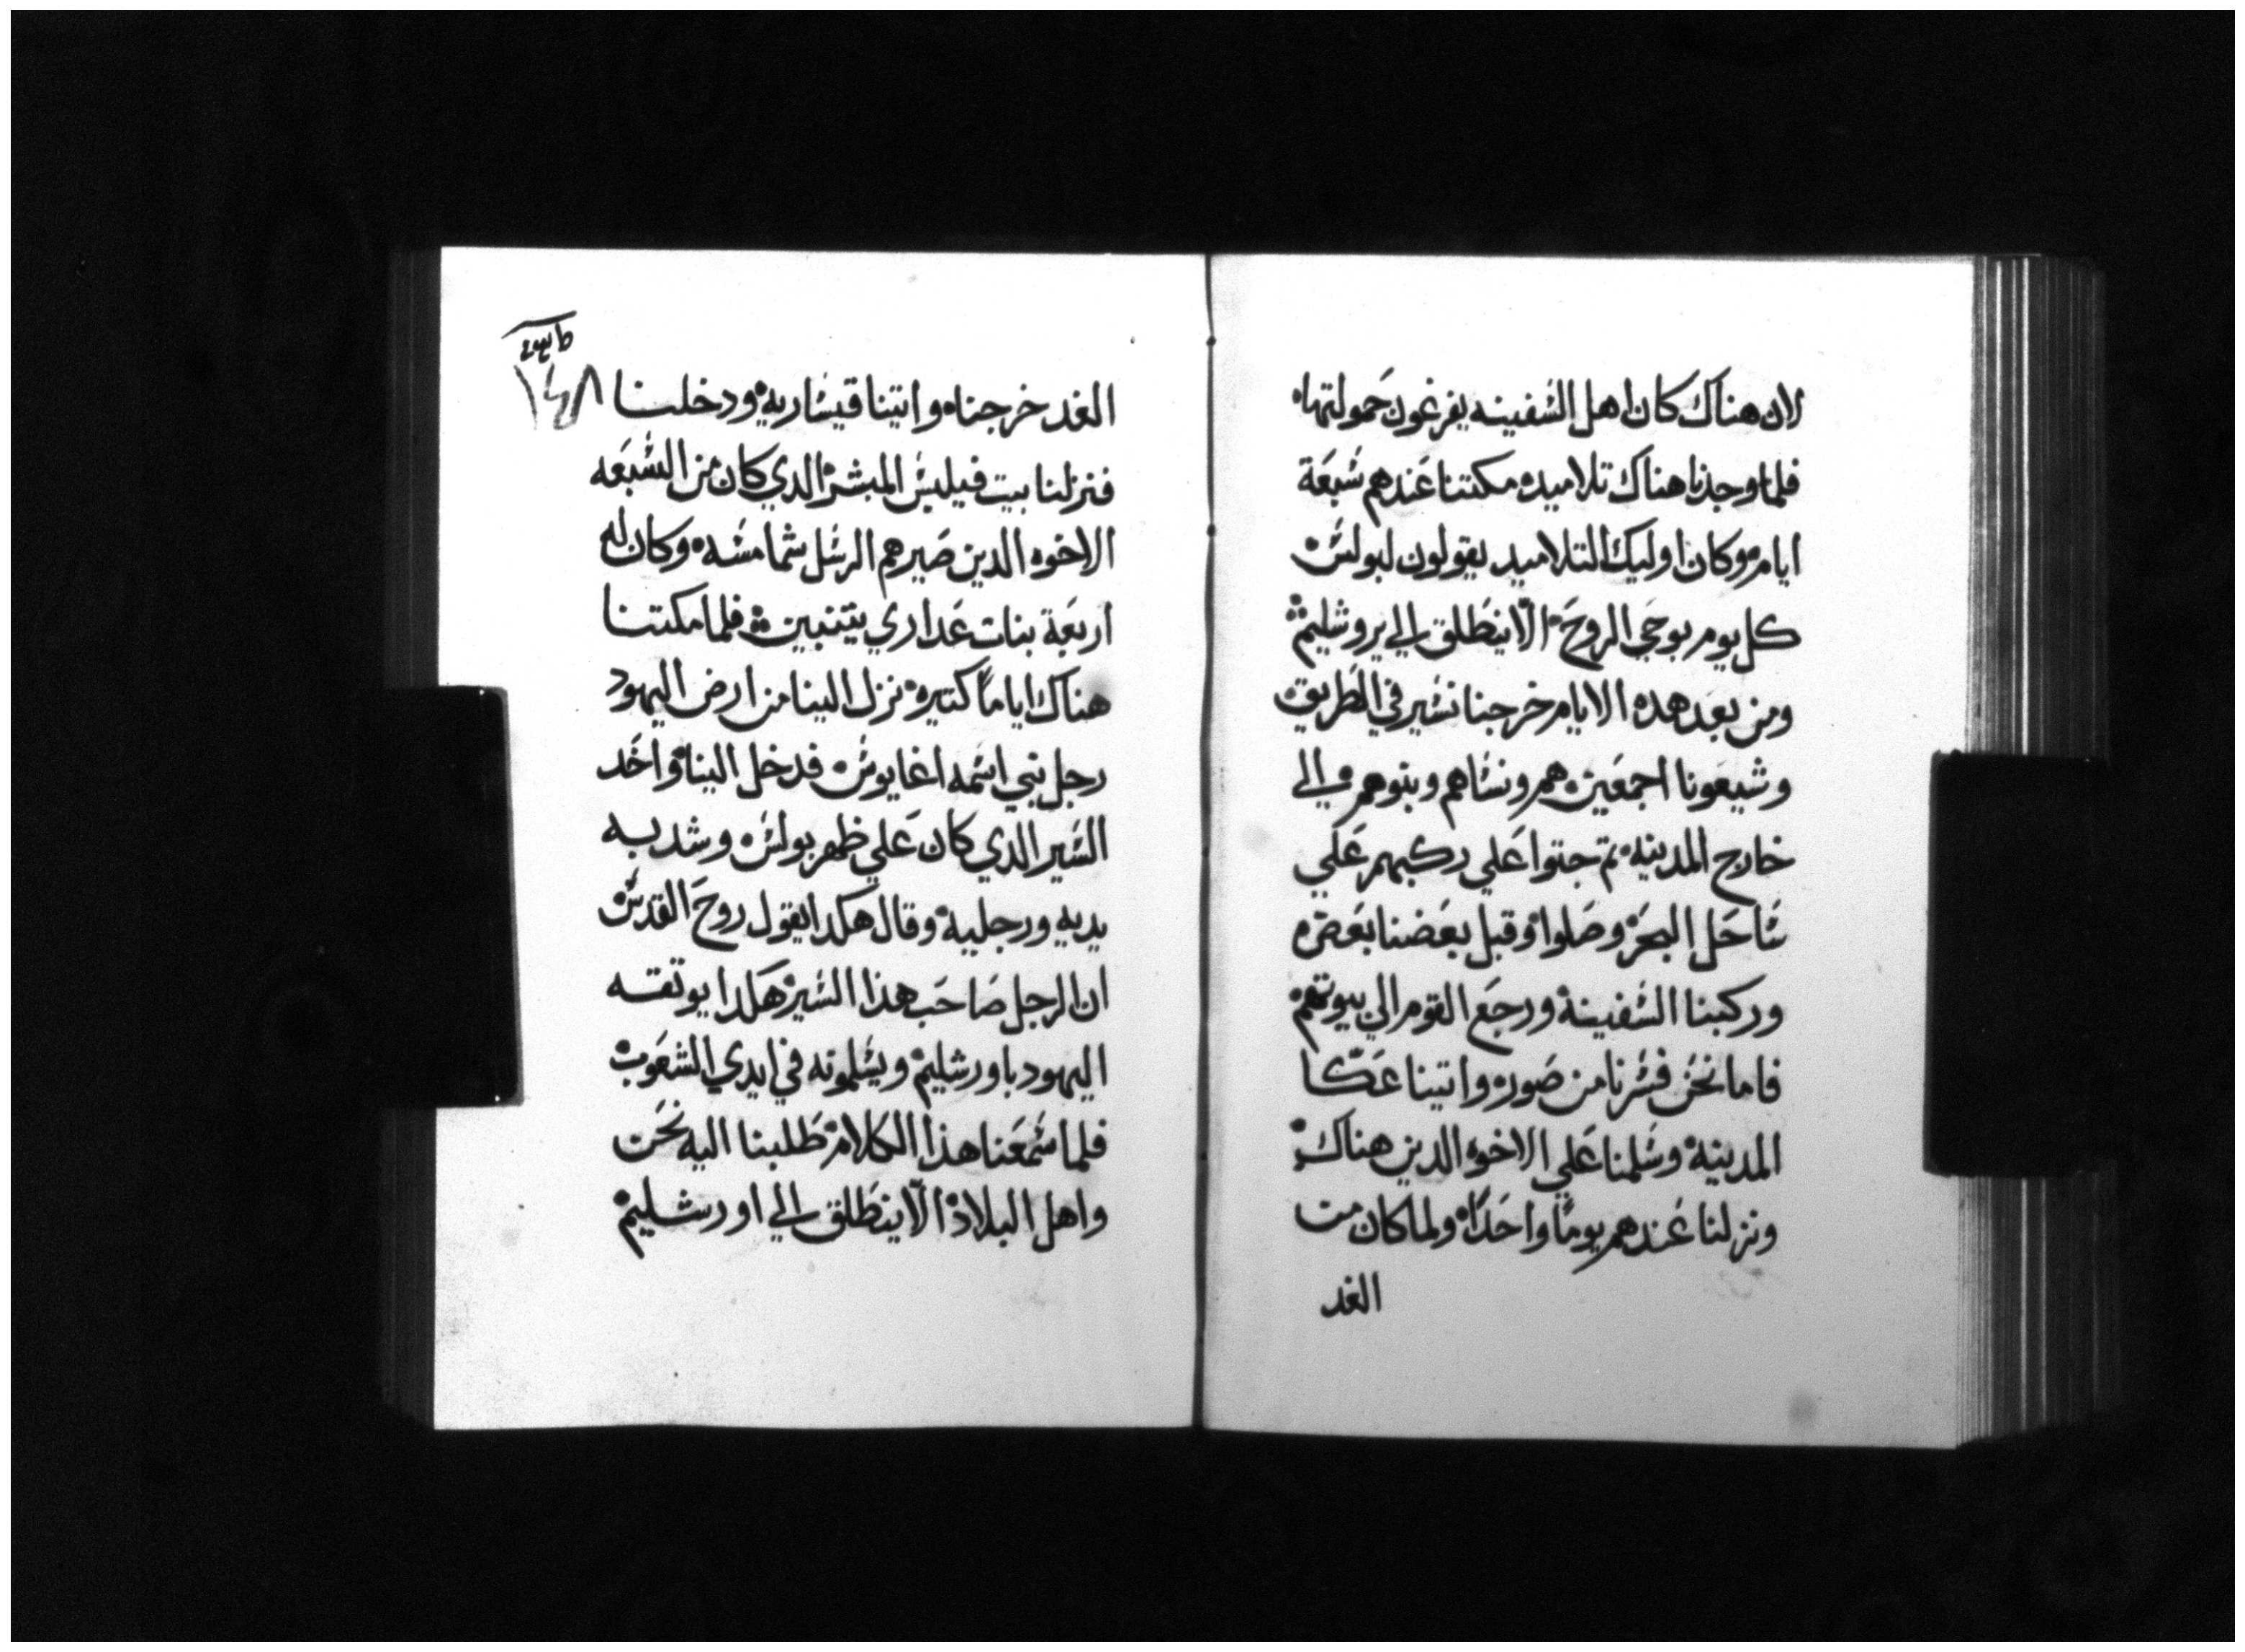 لان هناك كان اهل السفينه يفرغون حمولتها ه
فلما وجدنا هناك تلاميده مكتنا عندهم سبعة
ايام وكان اوليك التلاميد يقولون لبولس ه
كل يوم بوحي الروح الّا ينطلق الي يروشليم
ومن بعد هده الايام خرجنا نسير في الطريق
وشيعونا اجمعين هم ونساهم وبنوهم الي
خارج المدينه تم جتوا علي ركبهم علي
ساحل البحر وصلوا وقبل بعضنا بعض ه
وركبنا السفينة ورجع القوم الي بيوتهم
فاما نحن فسرنا من صوره واتينا عكّا
المدينة وسلمنا علي الاخوه الدين هناك
ونزلنا عندهم يومًا واحدًا ولما كان من
الغد
١٤٨
الغد خرجنا ه واتينا قيسارية ودخلنا
فنزلنا بيت فيلبس المبشر الدي كان من السبعه
الاخوه الدين صيرهم الرسل شمامسه وكان له
اربعة بنات عداري يتنبين فلما مكتنا
هناك اياماً كتيره نزل الينا من ارض اليهود
رجل نبي اسمه اغابوس ه فدخل الينا واخد
السير الدي كان علي ظهر بولس ه وشد به
يديه ورجلية وقال هكدا يقول روح القدس
ان الرجل صاحب هذا السير هكدا يوتقه
اليهود باورشليم ويسلمونه في ايدي الشعوب
فلما سمعنا هذا الكلام طلبنا اليه نحن
واهل البلاد الّا ينطلق الي اورشليم